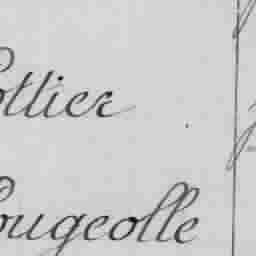 ottier
ougeolle